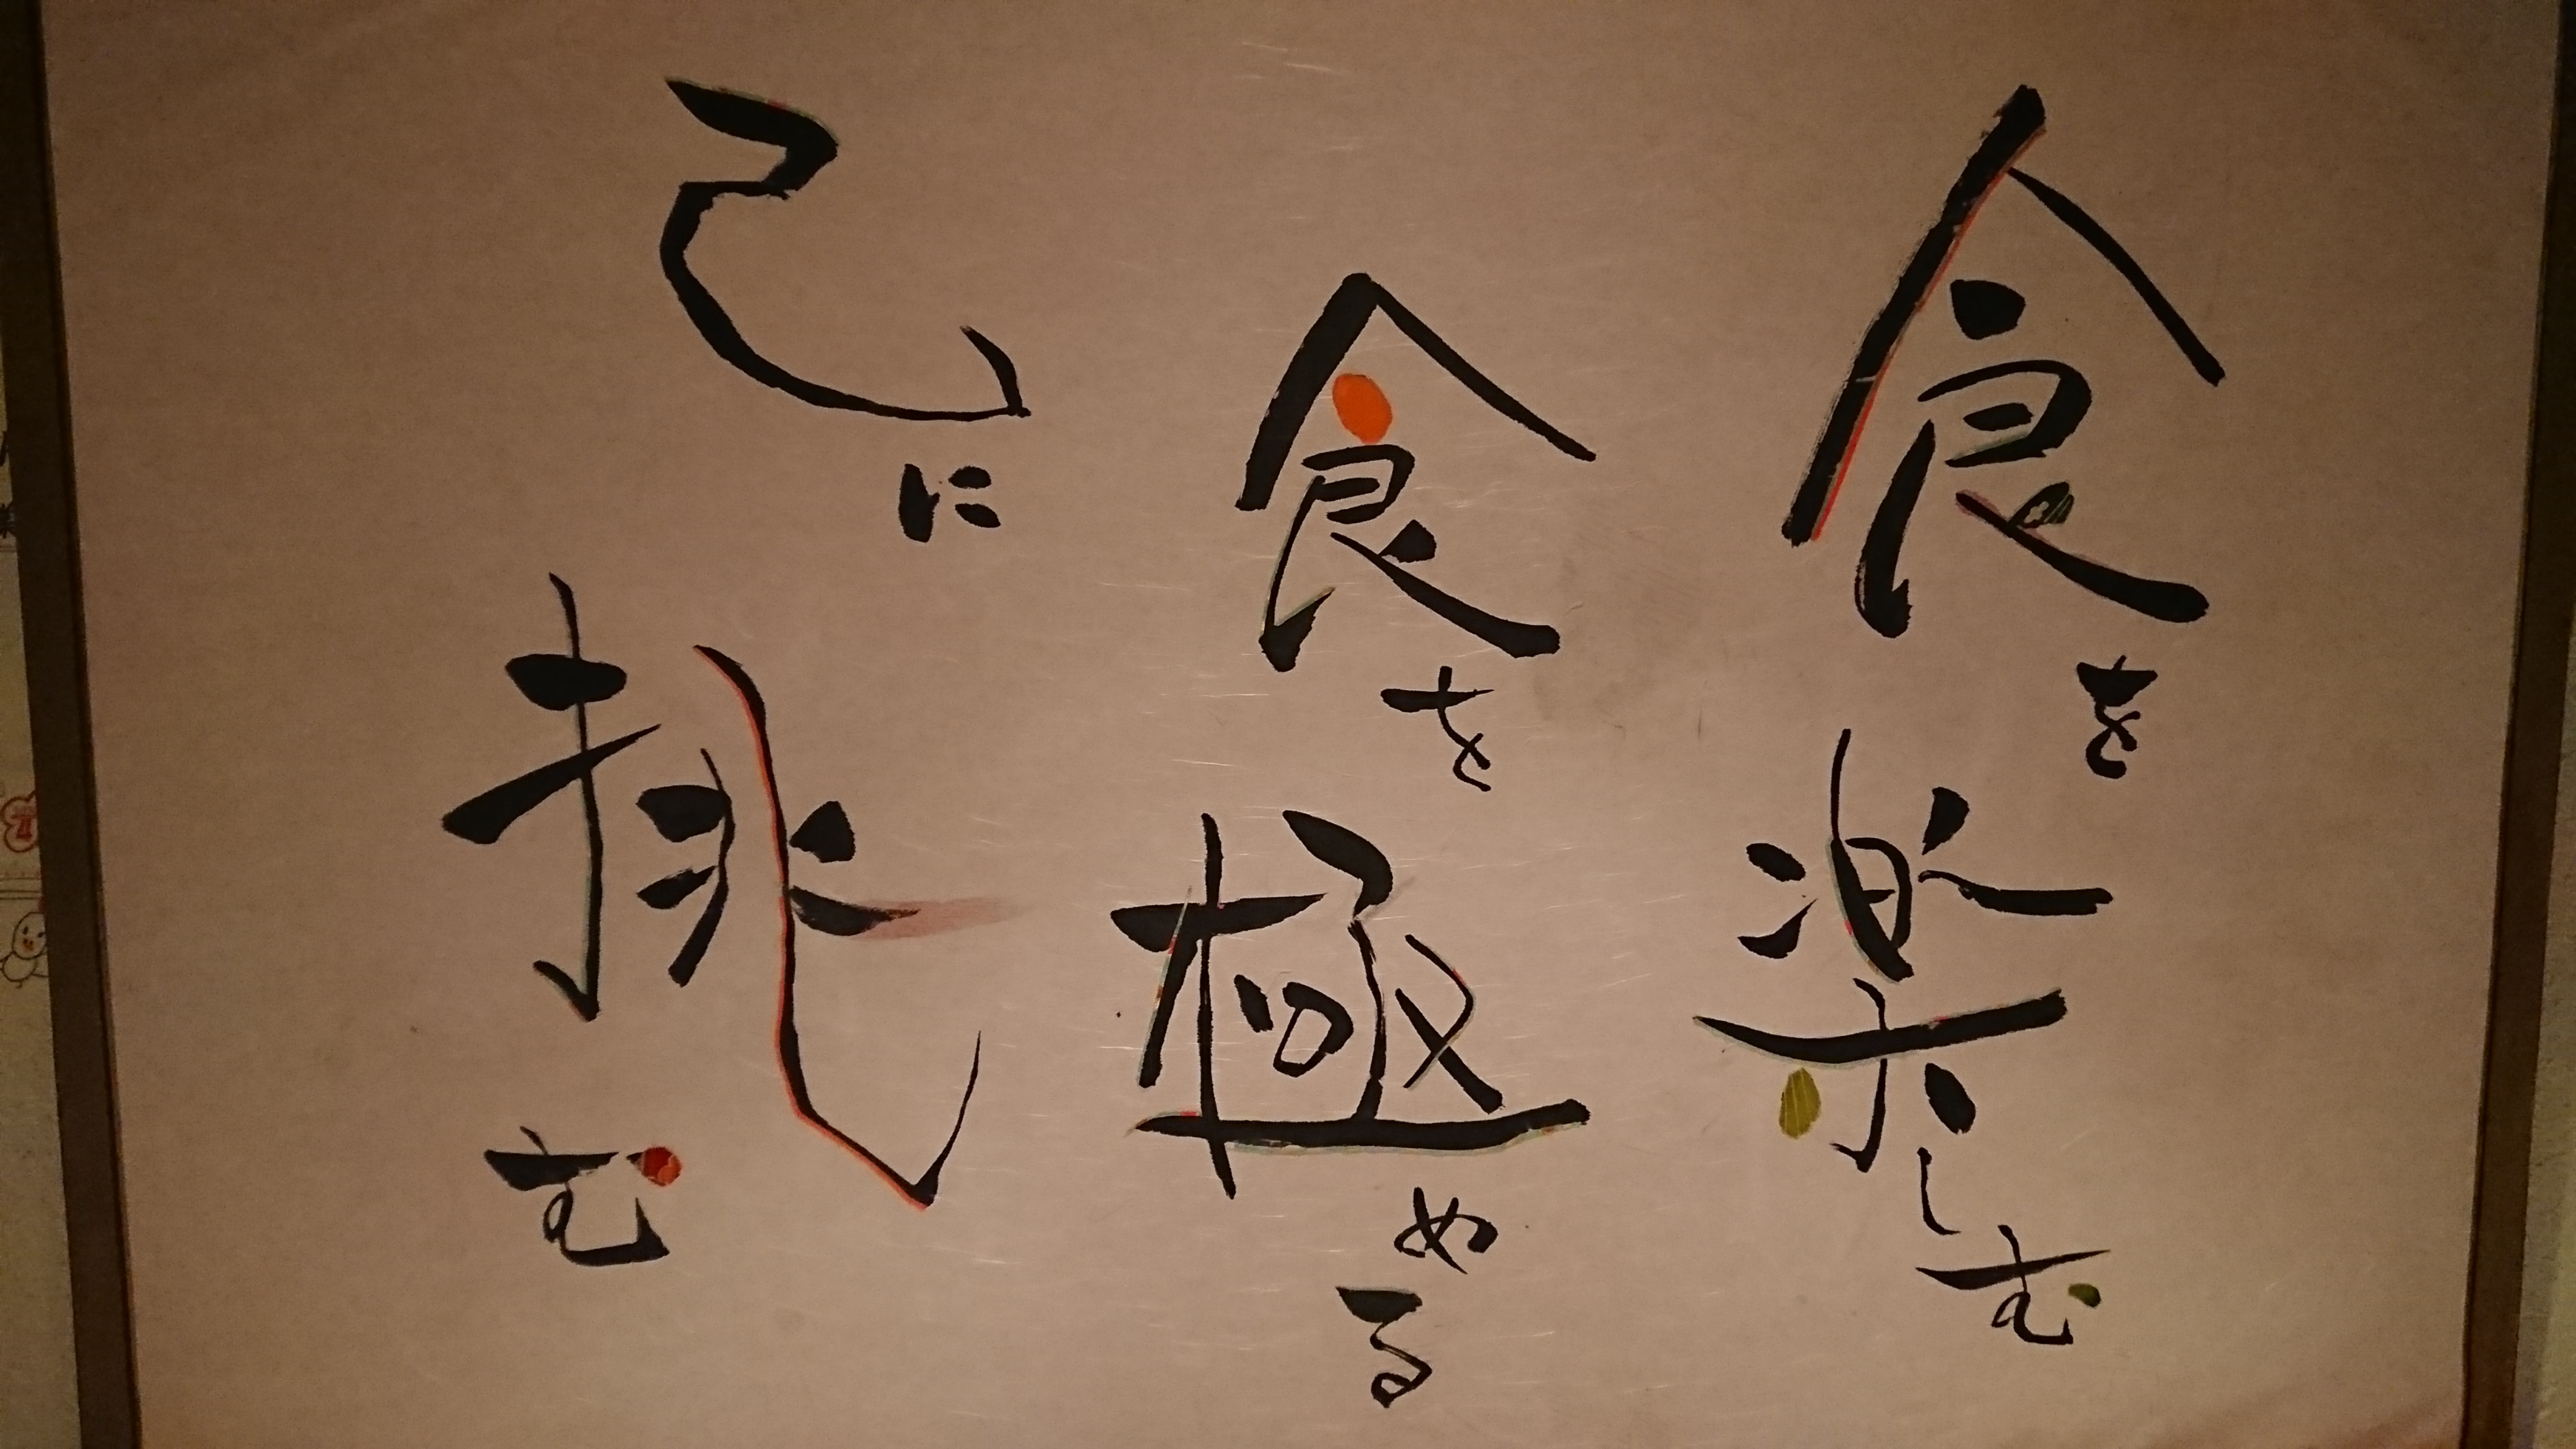 食を楽しむ
食を極める
己に挑む